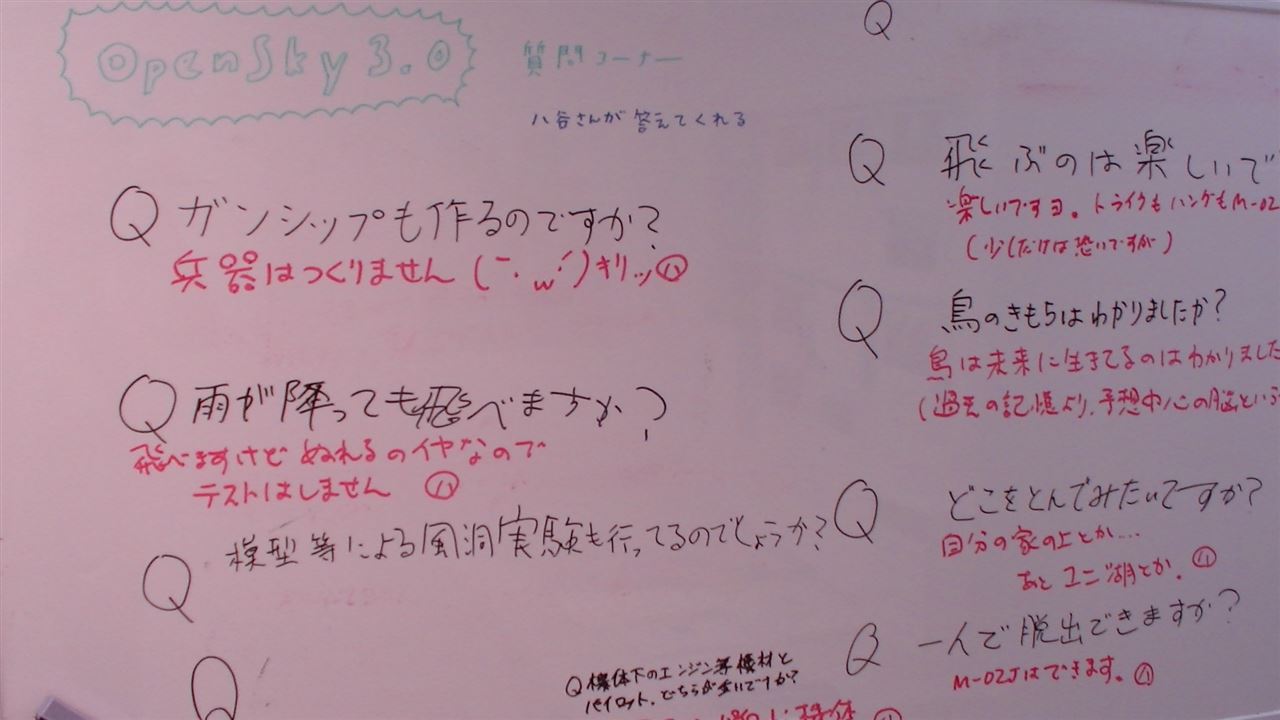 OpenSky 3.0
質問コーナー
八谷さんが答えてくれる
Q ガンシップも作るのですか?
兵器はつくりません (｀･ω･´)キリッ ハ
Q 雨が降っても飛べますか?
飛べますけどぬれるのイヤなので
テストはしません ハ
Q 模型等による風洞実験も行ってるのでしょうか?
Q
Q 機体下のエンジン等機材と
パイロット、どちらが重いですか?
機体 ハ
Q
Q 飛ぶのは楽しいで
楽しいですヨ。トライクもハングもM-02
(少しだけは恐いですが)
Q 鳥のきもちはわかりましたか?
鳥は未来に生きてるのはわかりました
(過去の記憶より、予想中心の脳という
Q どこをとんでみたいですか?
自分の家の上とか…
あと ユニ湖とか。ハ
Q 一人で脱出できますか?
M-02Jはできます。ハ